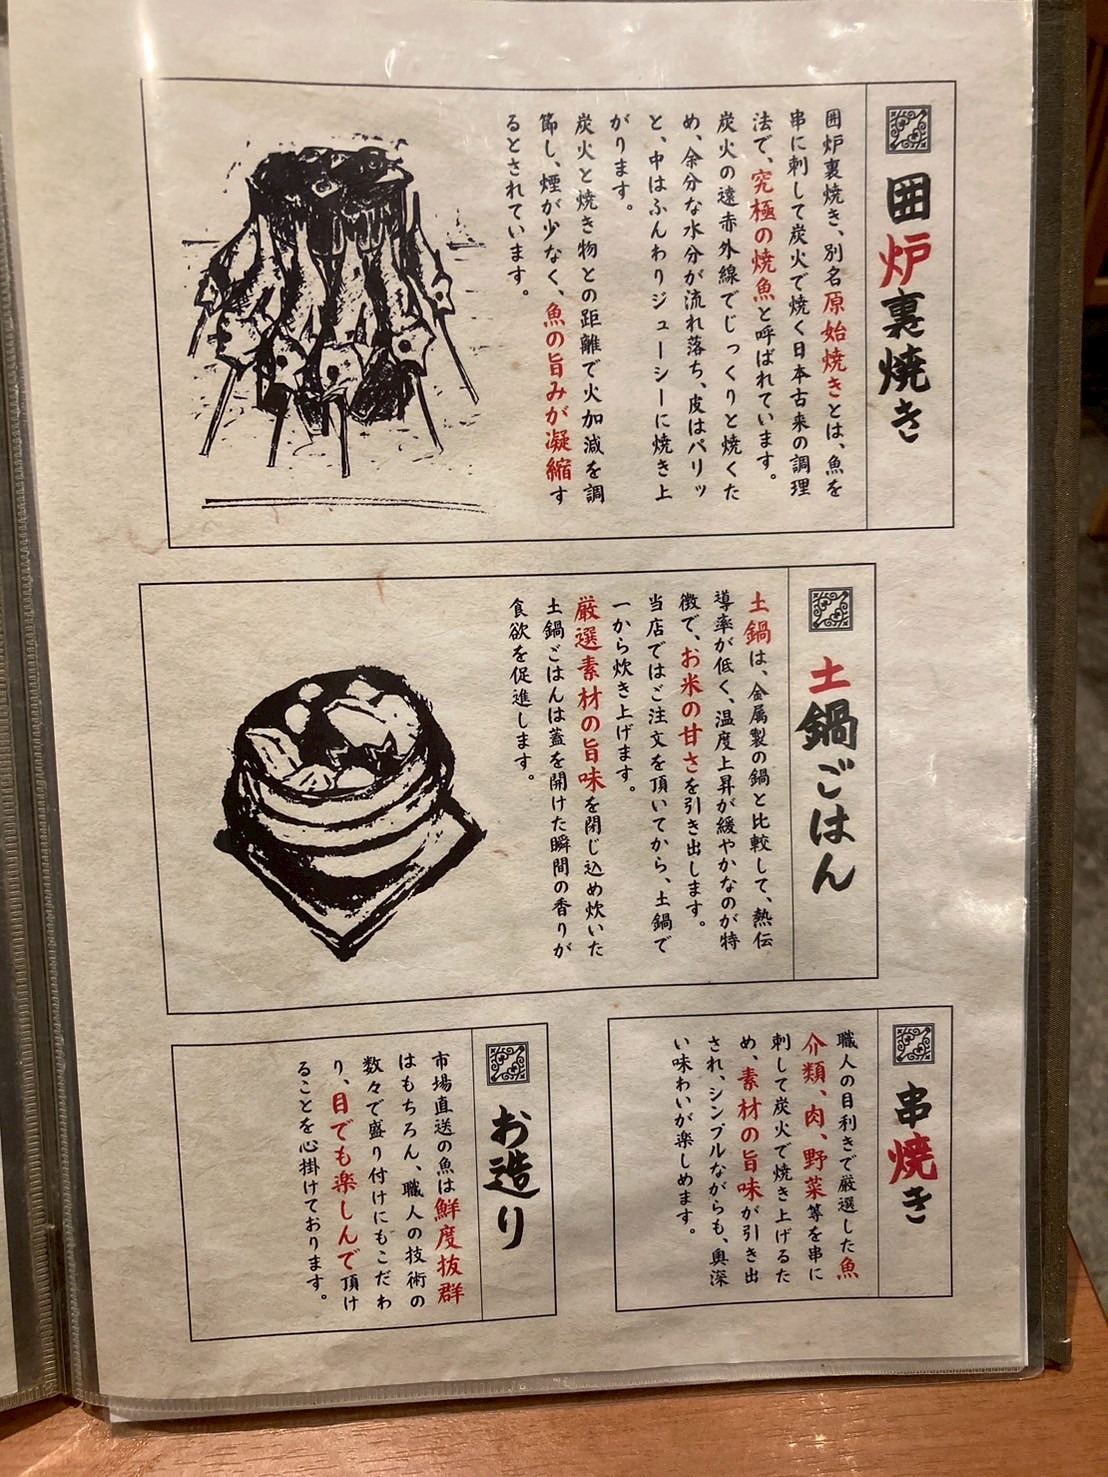 囲炉裏焼き
囲炉裏焼き、別名原始焼きとは、魚を
串に刺して炭火で焼く日本古来の調理
法で、究極の焼魚と呼ばれています。
炭火の遠赤外線でじっくりと焼くた
め、余分な水分が流れ落ち、皮はパリッ
と、中はふんわりジューシーに焼き上
がります。
炭火と焼き物との距離で火加減を調
節し、煙が少なく、魚の旨みが凝縮す
るとされています。
土鍋ごはん
土鍋は、金属製の鍋と比較して、熱伝
導率が低く、温度上昇が緩やかなのが特
徴で、お米の甘さを引き出します。
当店ではご注文を頂いてから、土鍋で
一から炊き上げます。
厳選素材の旨味を閉じ込め炊いた
土鍋ごはんは蓋を開けた瞬間の香りが
食欲を促進します。
串焼き
職人の目利きで厳選した魚
介類、肉、野菜等を串に
刺して炭火で焼き上げるた
め、素材の旨味が引き出
され、シンプルながらも、奥深
い味わいが楽しめます。
お造り
市場直送の魚は鮮度抜群
はもちろん、職人の技術の
数々で盛り付けにもこだわ
り、目でも楽しんで頂け
ることを心掛けております。